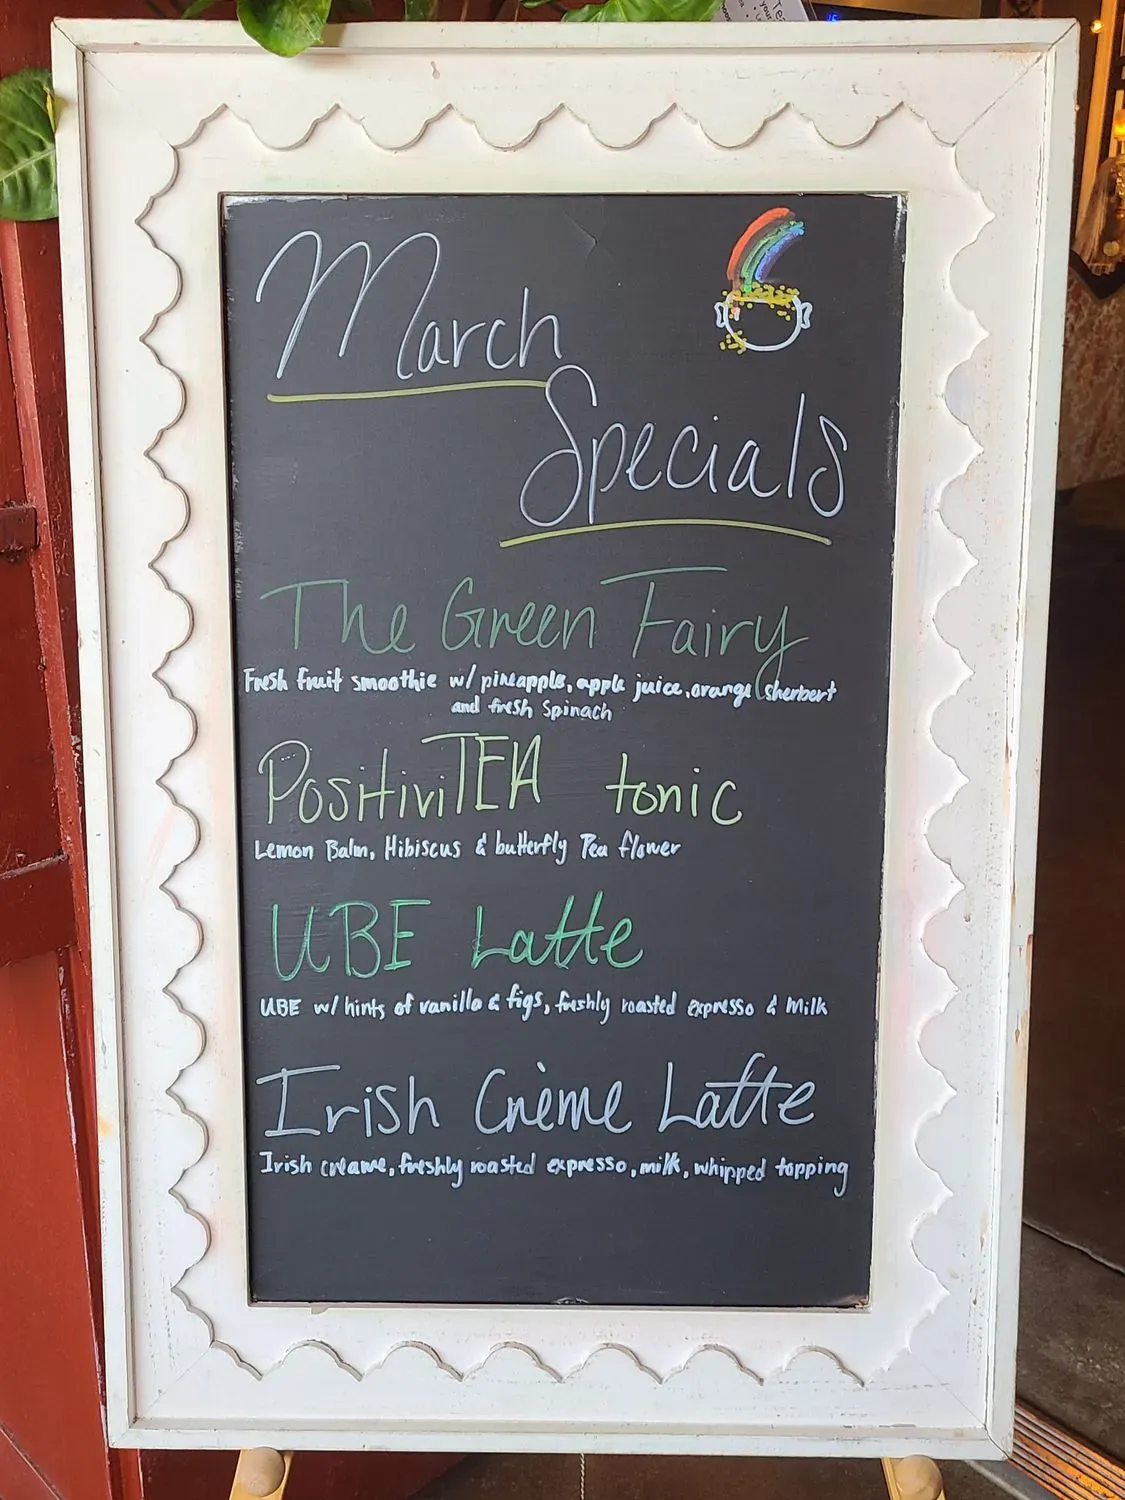 March
Specials
The Green Fairy
Fresh fruit smoothie w/ pineapple, apple juice, orange sherbert
and fresh Spinach
PositiviTEA tonic
Lemon Balm, Hibiscus & butterfly Pea flower
UBE Latte
UBE w/ hints of vanilla & figs, freshly roasted expresso & Milk
Irish Crème Latte
Irish creame, freshly roasted expresso, milk, whipped topping